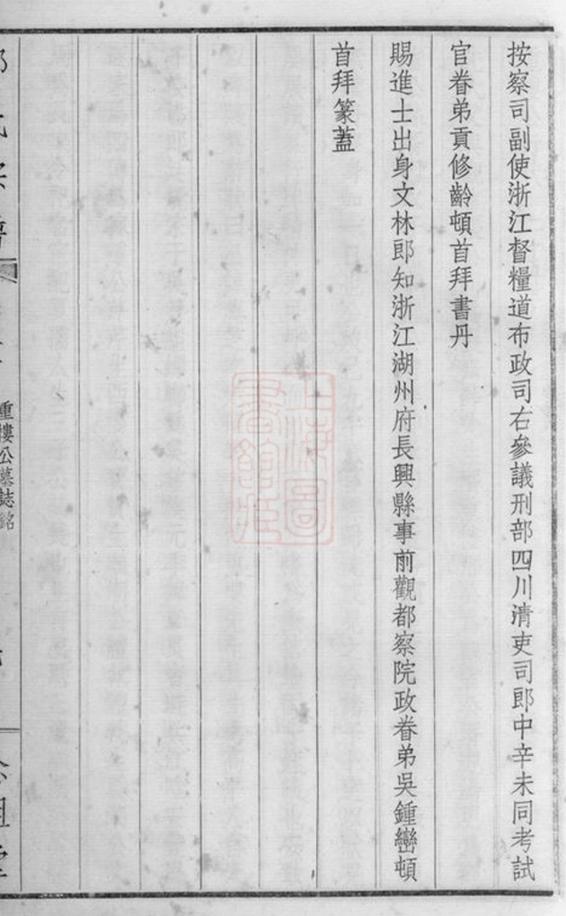 按察司副使浙江督糧道布政司右參議刑部四川清吏司郎中辛未同考試
官眷弟貢修齡頓首拜書丹
賜進士出身文林郎知浙江湖州府長興縣事前觀都察院政眷弟吳鍾巒頓
首拜篆蓋
重樓公墓誌銘
上海圖書館藏